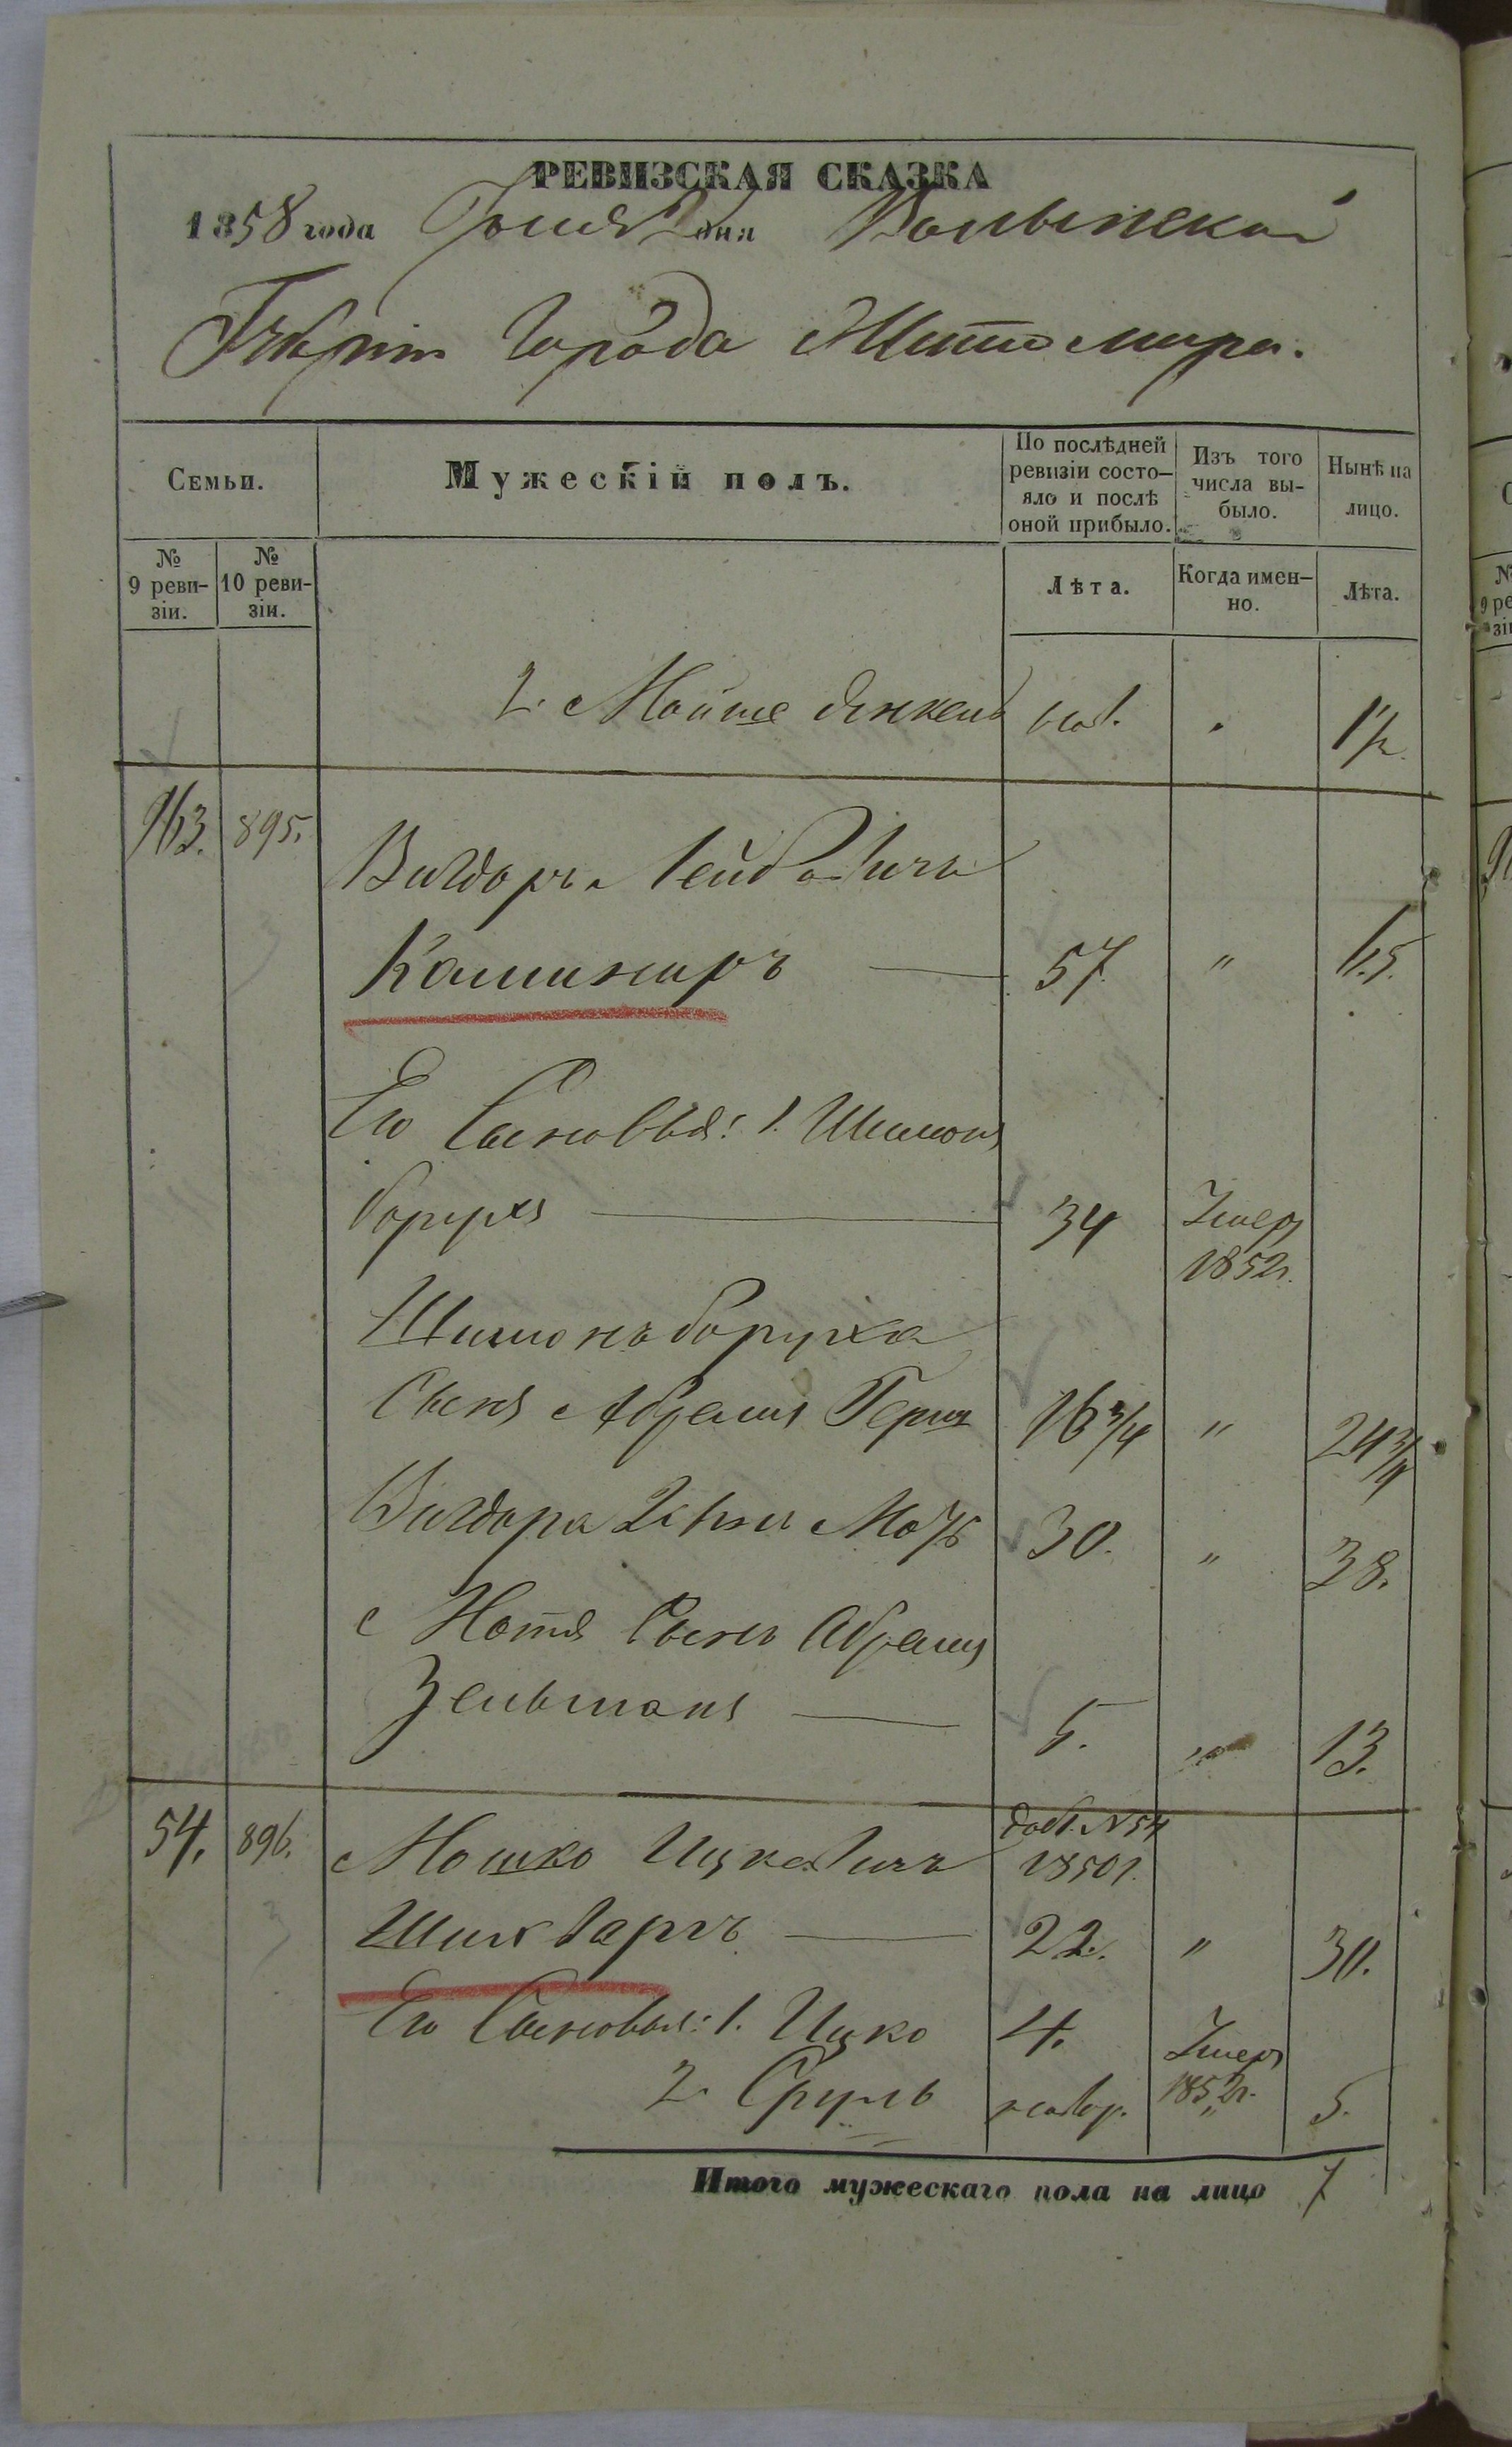 РЕВИЗСКАЯ СКАЗКА
1858 года Іюня 2 дня Волынской
Губерніи Города Житомира.
Семьи.
Мужескій полъ.
По послѣдней
ревизіи состо-
яло и послѣ
оной прибыло.
Изъ того
числа вы-
было.
Нынѣ на
лицо.
№
9 реви-
зіи.
№
10 реви-
зіи.
Лѣта.
Когда имен-
но.
Лѣта.
2. Мойше Янкель нов. " 1½
963. 895. Вигдоръ Лейбовичъ
Кашниръ — 57. " 65.
Его Сыновья: 1. Шимонъ
Борухъ — 34 Умеръ
1852г.
Шимонъ Боруха
Сынъ Абрамъ Герш 16¾ " 24¾
Вигдора 2й сын Мотъ 30. " 38.
Мотя Сынъ Абрамъ
Зельманъ — 5. " 13.
54. 896. Мошко Ицковичъ доб. №54
1850г.
Шихваргъ — 22. " 30.
Его Сыновья: 1. Ицко 4. Умеръ
1852г.
2. Сруль новор. " 5.
Итого мужескаго пола на лицо 7